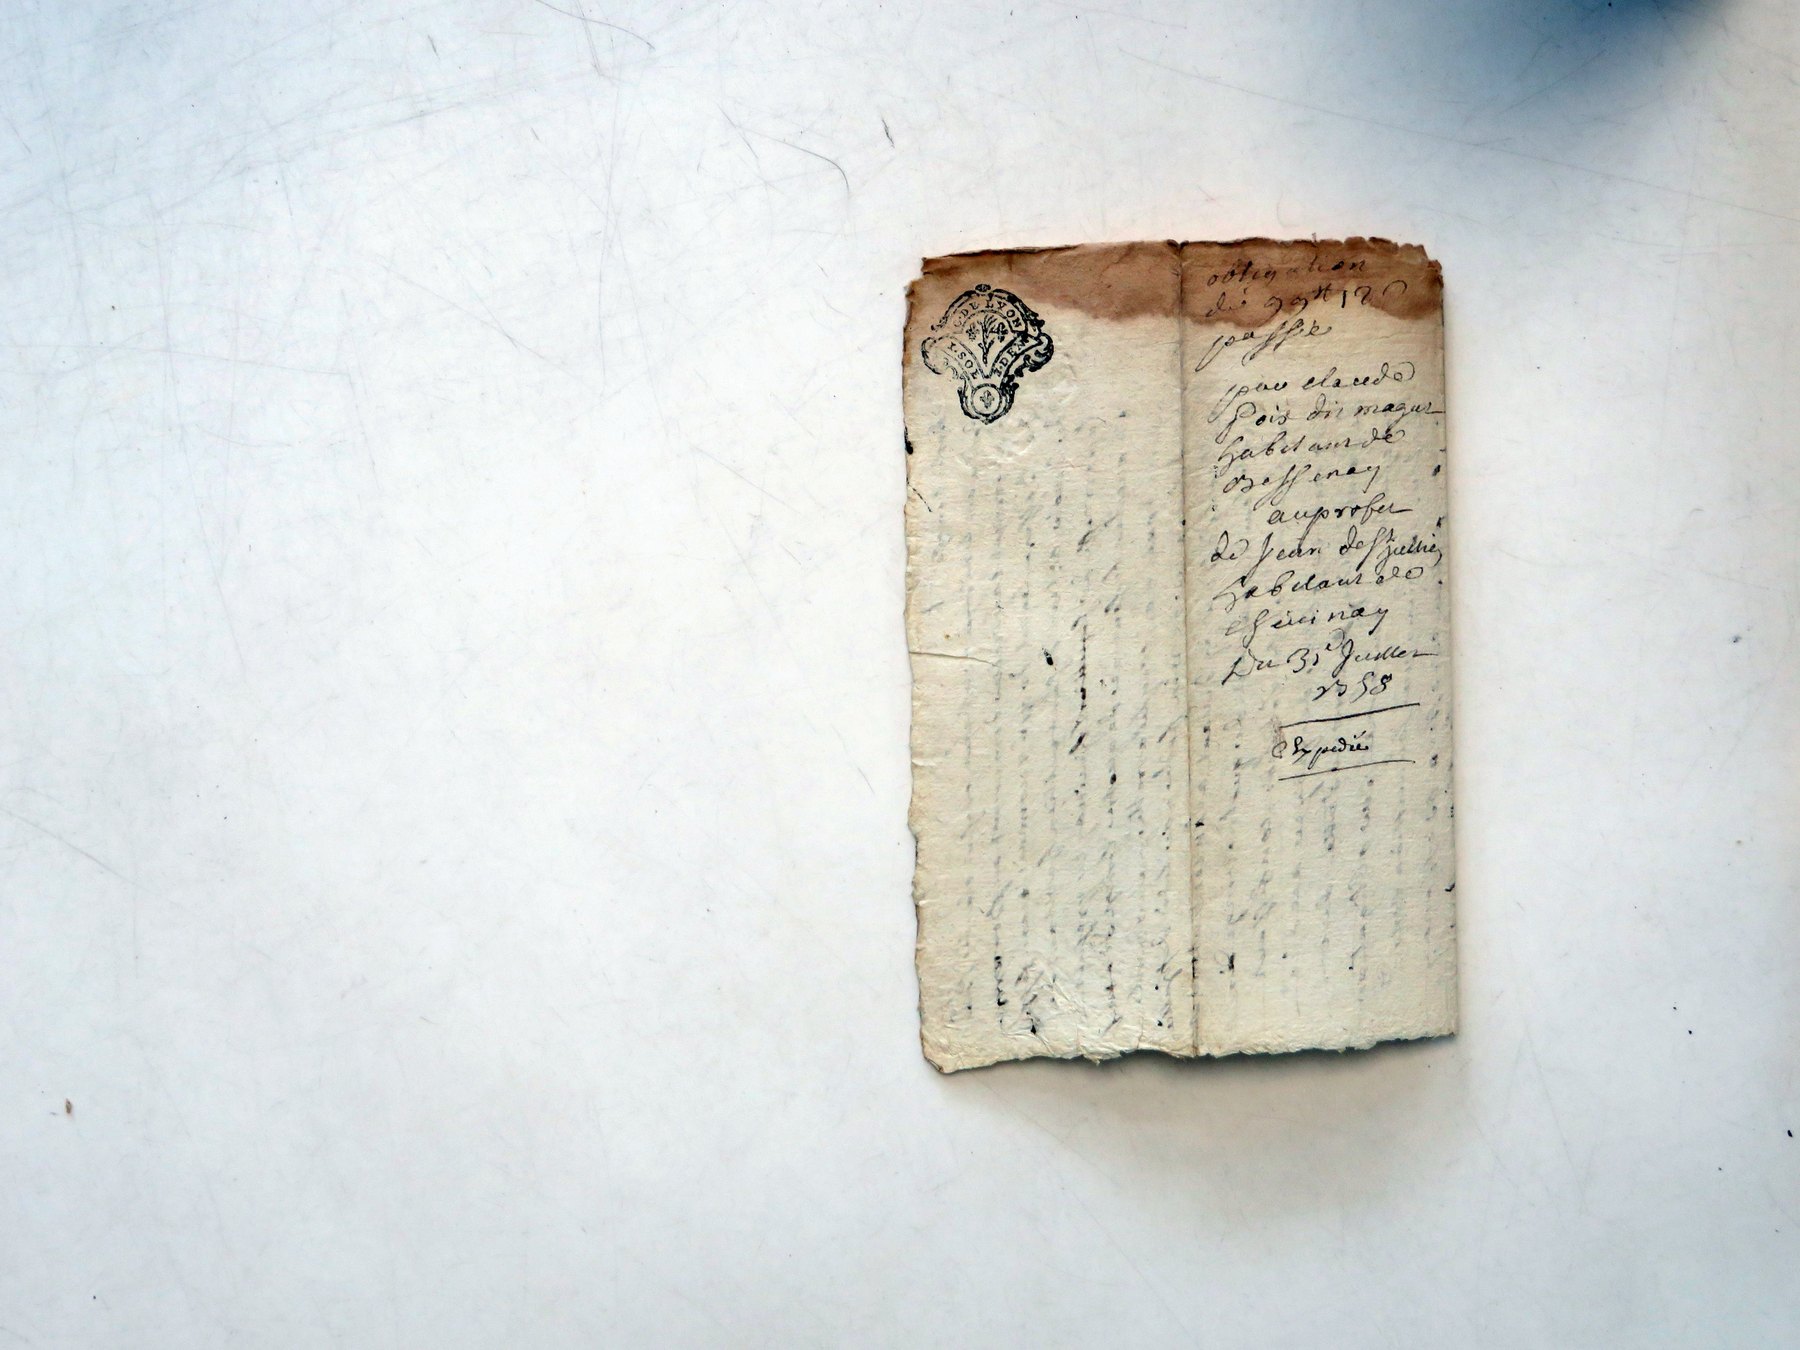 G. DE LYON
1. SOL 1. DEN
obligation
de 99tt 18
passée
par claude
pois dit magat
habitant de
Bessenay
au profit
de Jean de St Jullie
habitant de
chevinay
Du 31e Juillet
1758
Expedié